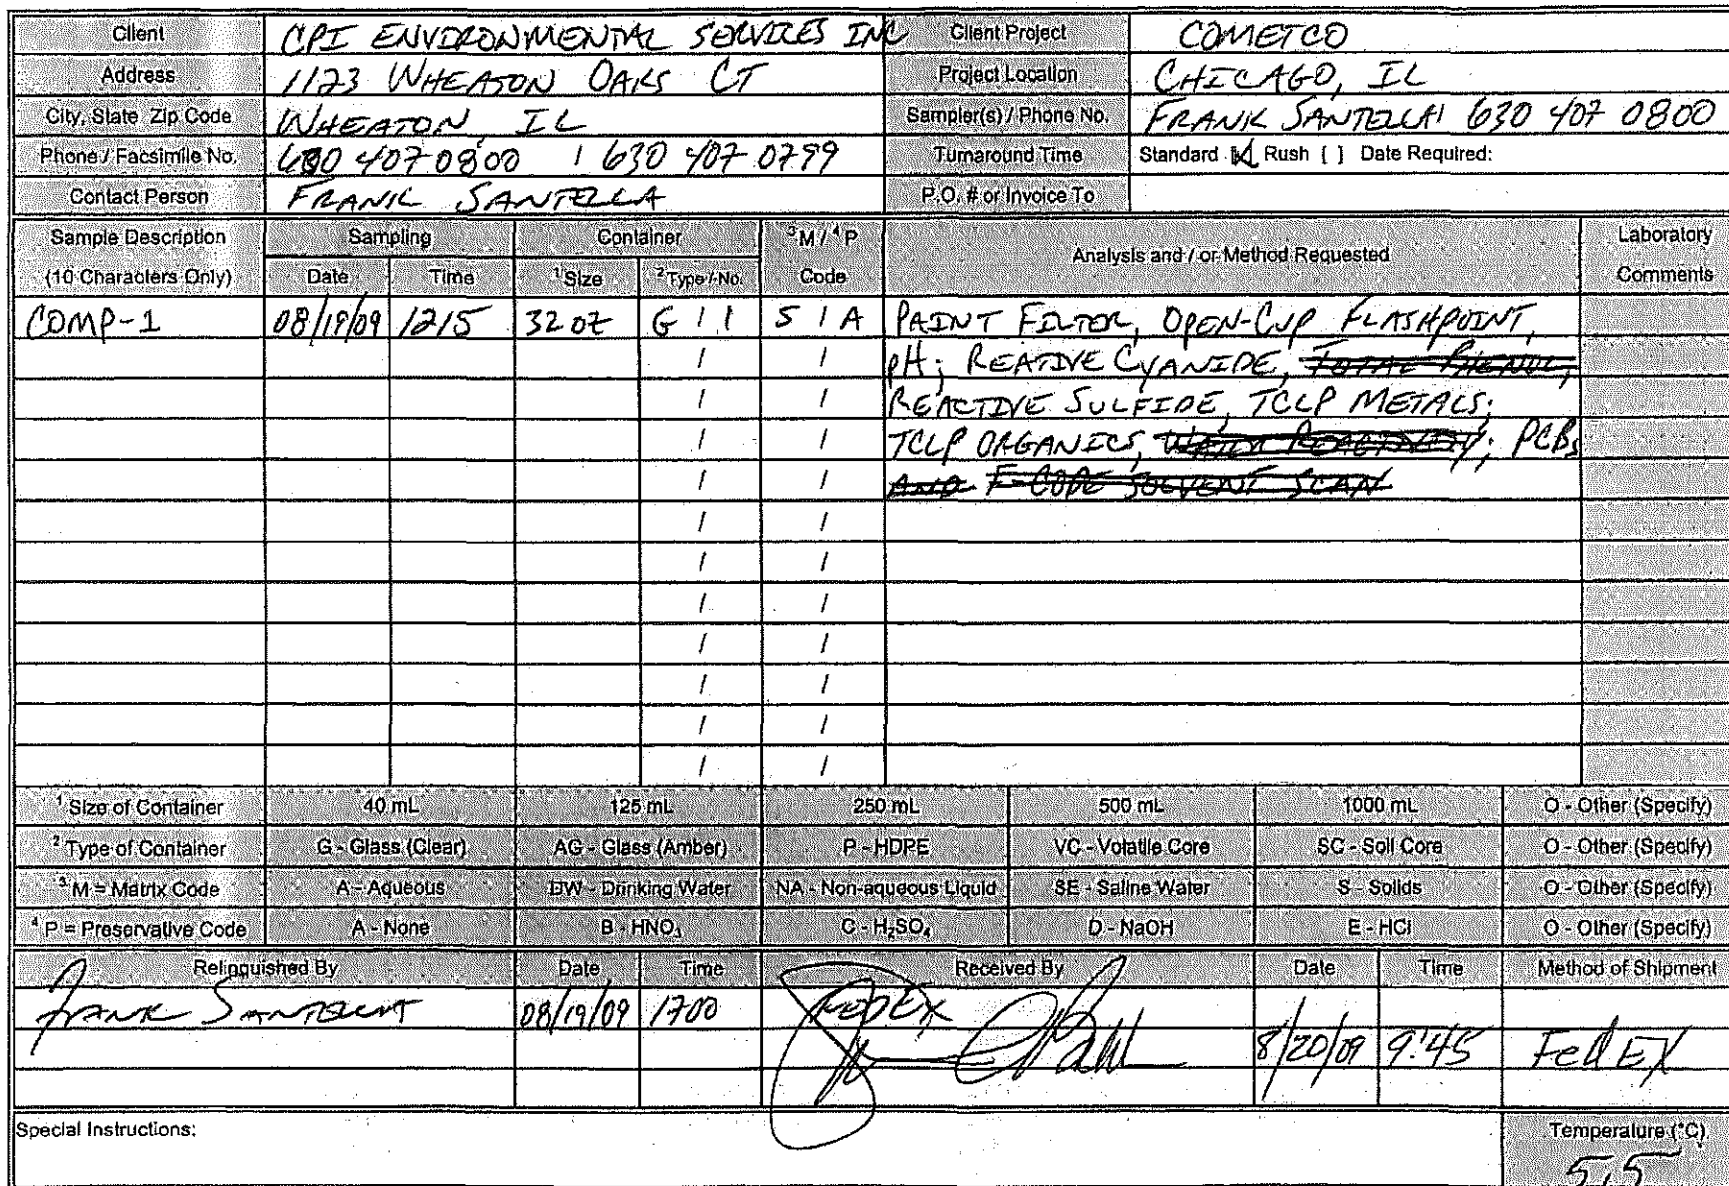 Client CPI ENVIRONMENTAL SERVICES INC Client Project COMETCO
Address 1123 WHEATON OAKS CT Project Location CHICAGO, IL
City, State Zip Code WHEATON, IL Sampler(s) / Phone No. FRANK SANTELLA / 630 407 0800
Phone / Facsimile No. 630 407 0800 / 630 407 0799 Turnaround Time Standard [X] Rush [ ] Date Required:
Contact Person FRANK SANTELLA P.O. # or Invoice To
Sample Description Sampling Container ³M / ⁴P Analysis and / or Method Requested Laboratory
(10 Characters Only) Date Time ¹Size ²Type / No. Code Comments
COMP-1 08/19/09 1215 32 oz G / 1 S / A PAINT FILTER, OPEN-CUP FLASHPOINT,
/ / pH; REATIVE CYANIDE, TOTAL PHENOL,
/ / REACTIVE SULFIDE, TCLP METALS;
/ / TCLP ORGANICS, WATER REACTIVITY; PCBs
/ / AND F-CODE SOLVENT SCAN
/ /
/ /
/ /
/ /
/ /
/ /
/ /
¹ Size of Container 40 mL 125 mL 250 mL 500 mL 1000 mL O - Other (Specify)
² Type of Container G - Glass (Clear) AG - Glass (Amber) P - HDPE VC - Volatile Core SC - Soil Core O - Other (Specify)
³ M = Matrix Code A - Aqueous DW - Drinking Water NA - Non-aqueous Liquid SE - Saline Water S - Solids O - Other (Specify)
⁴ P = Preservative Code A - None B - HNO₃ C - H₂SO₄ D - NaOH E - HCl O - Other (Specify)
Relinquished By Date Time Received By Date Time Method of Shipment
FRANK SANTELLA 08/19/09 1700 FEDEX
8/20/09 9:45 Fed EX
Special Instructions: Temperature (°C)
5.5